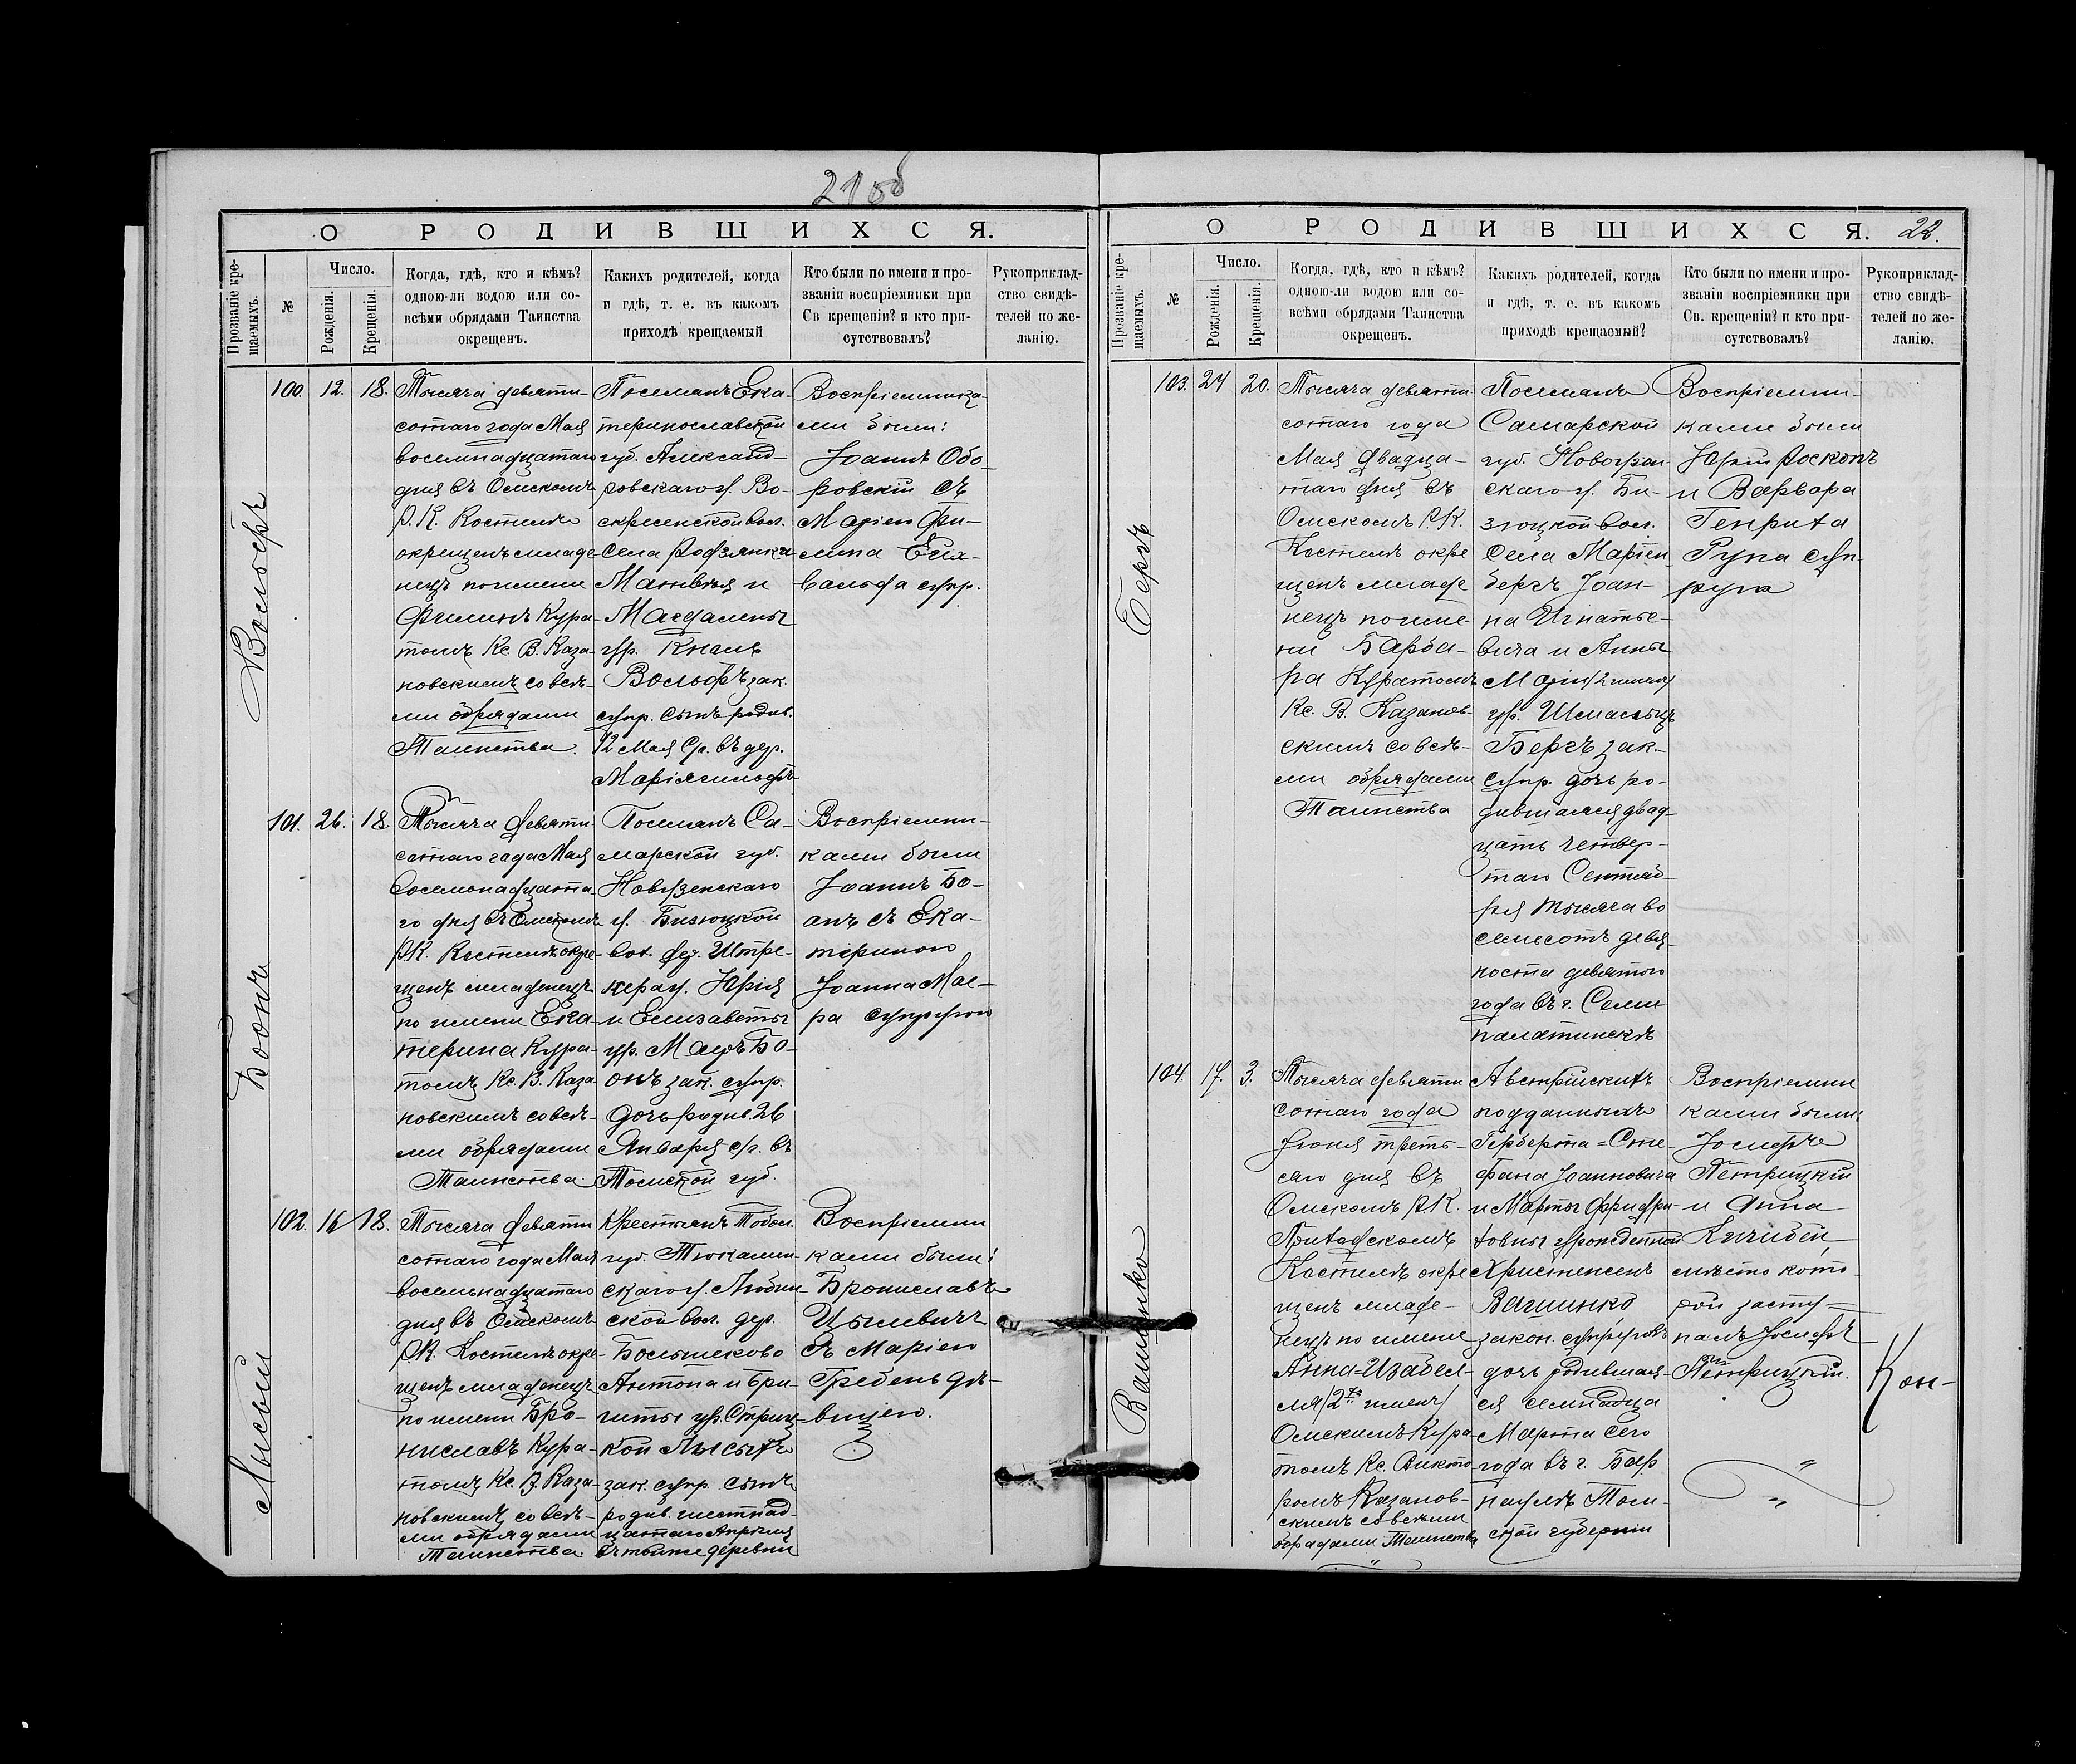 21об
О РОДИВШИХСЯ.
Прозваніе кре-
щаемыхъ.
№
Число.
Рожденія.
Крещенія.
Когда, гдѣ, кто и кѣмъ?
одною-ли водою или со-
всѣми обрядами Таинства
окрещенъ.
Какихъ родителей, когда
и гдѣ, т. е. въ какомъ
приходѣ крещаемый
Кто были по имени и про-
званіи воспріемники при
Св крещеніи? и кто при-
сутствовалъ?
Рукоприклад-
ство свидѣ-
телей по же-
ланію.
Вольфъ
100. 12. 18.
Тысяча девяти-
сотаго года Мая
восемнадцатаго
дня въ Омскомъ
Р. К. Костелѣ
окрещенъ младе-
нецъ по имени
Филипъ Кура-
томъ Кс. В. Каза-
новскимъ со всѣ-
ми обрядами
Таинства.
Поселянъ Ека-
теринославской
губ. Александ-
ровскаго у. Во-
скресенской вол.
села Родзянка
Матвѣя и
Магдалены
ур. Кнель
Вольфъ зак.
супр. сынъ родив.
12 Мая с/г. въ дер.
Воспріемника-
ми были:
Іоаннъ Обо-
ровскій съ
Маріею Фи-
липа
вальфа супр.
Боонъ
101. 26. 18.
Тысяча девяти-
сотаго года Мая
восемьнадцата-
го дня въ Омскомъ
Р.К. Костелѣ окре-
щенъ младенецъ
по имени Ека-
терина Кура-
томъ Кс. В. Каза-
новскимъ со всѣ-
ми обрядами
Таинства.
Поселянъ Са-
марской губ.
Новоузенскаго
у. Бизюцкой
вол. дер. Штре-
керау. Юрія
и Елизаветы
ур. Маеръ Бо-
онъ зак. супр.
дочь родив. 26
Января с/г. въ
Томской губ.
Воспріемни-
ками были
Іоаннъ Бо-
анъ съ Ека-
териною
Іоанна Мае-
ра супругою
Лысый
102. 16 18.
Тысяча девяти
сотаго года Мая
восемьнадцатаго
дня въ Омскомъ
Р.К. Костелѣ окре-
щенъ младенецъ
по имени Бро-
ниславъ Кура-
томъ Кс. В. Каза-
новскимъ со всѣ-
ми обрядами
Таинства
Крестьянъ Тобол.
губ. Тюкалин-
скаго у. Любин-
ской вол. дер.
Большеково
Антона и Бри-
гиты ур. Стриц-
кой Лысыхъ
зак. супр. сынъ
родив. шестнад-
цатаго Апрѣля
въ той же деревни
Воспріемни
ками были:
Брониславъ
Цылевичъ
съ Маріею
Гребень дѣ-
вицею.
О РОДИВШИХСЯ. 22.
Прозваніе кре-
щаемыхъ.
№
Число.
Рожденія.
Крещенія.
Когда, гдѣ, кто и кѣмъ?
одною-ли водою или со-
всѣми обрядами Таинства
окрещенъ.
Какихъ родителей, когда
и гдѣ, т. е. въ какомъ
приходѣ крещаемый?
Кто были по имени и про-
званіи воспріемники при
Св. крещеніи? и кто при-
сутствовалъ?
Рукоприклад-
ство свидѣ-
телей по же-
ланію.
Бергъ
103. 24 20.
Тысяча девяти-
сотаго года
Мая двадца-
таго дня въ
Омскомъ Р.К.
Костелѣ окре
щенъ младе
нецъ по име-
ни Барба-
ра Куратомъ
Кс. В. Казанов-
скимъ со всѣ-
ми обрядами
Таинства
Поселянъ
Самарской
губ. Новоузен-
скаго у. Би-
зюцкой вол.
села Маріен-
бергъ Іоан-
на Игнатье-
вича и Анны
Маріи /2 имени/
ур.
Бергъ зак.
супр. дочь ро-
дившаяся двад-
цать четвер-
таго Сентяб-
ря тысяча во
семьсотъ девя-
носта девятого
года въ г. Семи
палатинскѣ
Воспріемни-
ками были
Юрій Росколъ
и Варвара
Генриха
Рупа суп-
руга
Вашинко
104. 17. 3.
Тысяча девяти
сотаго года
Іюня треть-
яго дня въ
Омскомъ Р.К.
Приходскомъ
Костелѣ окре
щенъ младе-
нецъ по имени
Анна-Изабел-
ла /2хъ именъ/
Омскимъ Кура-
томъ Кс. Викто-
ромъ Казанов-
скимъ со всѣми
обрядами Таинства
Австрійскихъ
подданныхъ
Герберта=Сте-
фана Іоанновича
и Марты Фридри-
ховны урожденной
Христенсенъ
Вашинко
закон. супруговъ
дочь родившая-
ся семнадца
Марта сего
года въ г. Бар
наулѣ Том-
ской губерніи
Воспріемни
ками были:
Іосифъ
Петрицкій
и Анна
вмѣсто кото-
рой засту-
палъ Іосифъ
Петрицкій.
Кон-